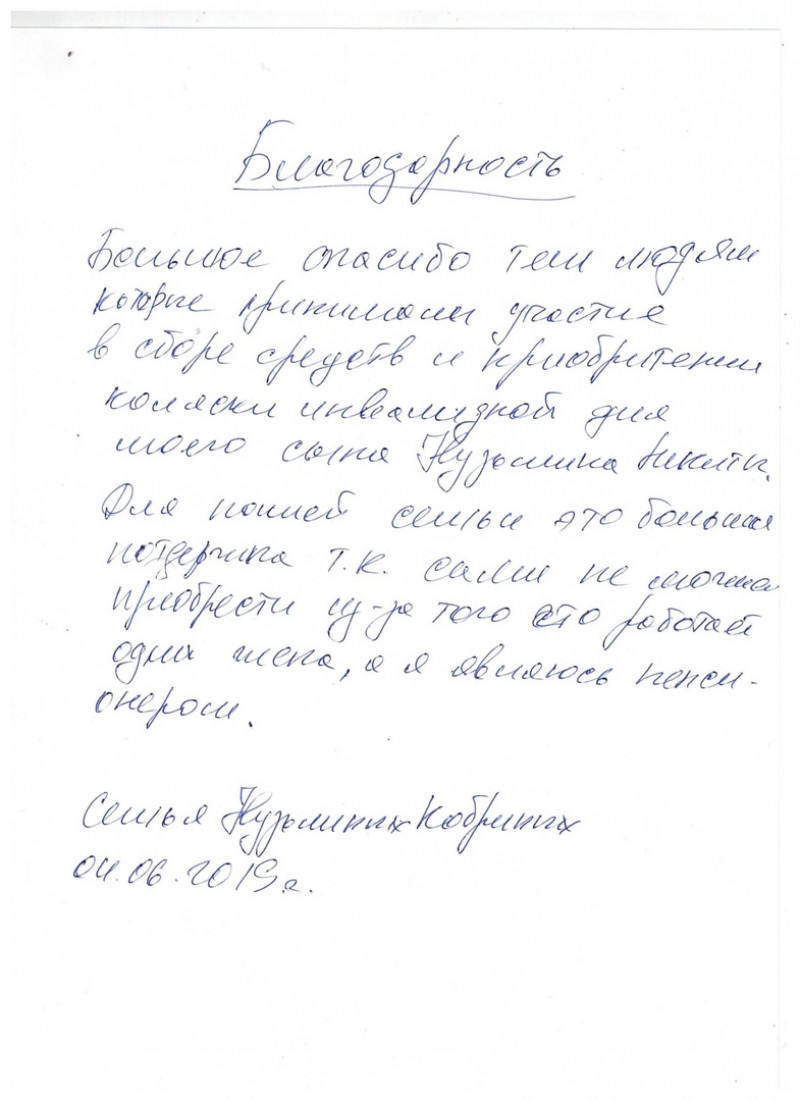 Благодарность
Большое спасибо тем людям
которые принимали участие
в сборе средств и приобритении
коляски инвалидной для
моего сына Кузьмина Никиты.
Для нашей семьи это большая
потдержка т.к. сами не можем
приобрести из-за того что работает
одна жена, а я являюсь пенси-
онером.
Семья Кузьминых Кобриных
04.06.2019г.